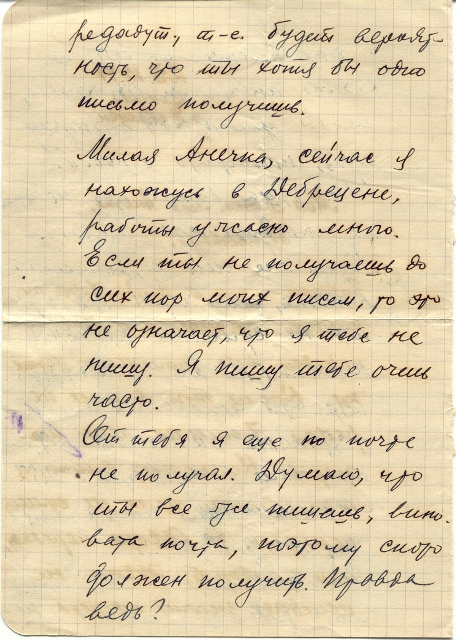 редадут, т-е. будет вероят-
ность, что ты хотя бы одно
письмо получишь.
Милая Анечка, сейчас я
нахожусь в Дебрецене,
работы ужасно много.
Если ты не получаешь до
сих пор моих писем, то это
не означает, что я тебе не
пишу. Я пишу тебе очень
часто.
От тебя я еще по почте
не получал. Думаю, что
ты все же пишешь, вино-
вата почта, поэтому скоро
должен получить. Правда
ведь?